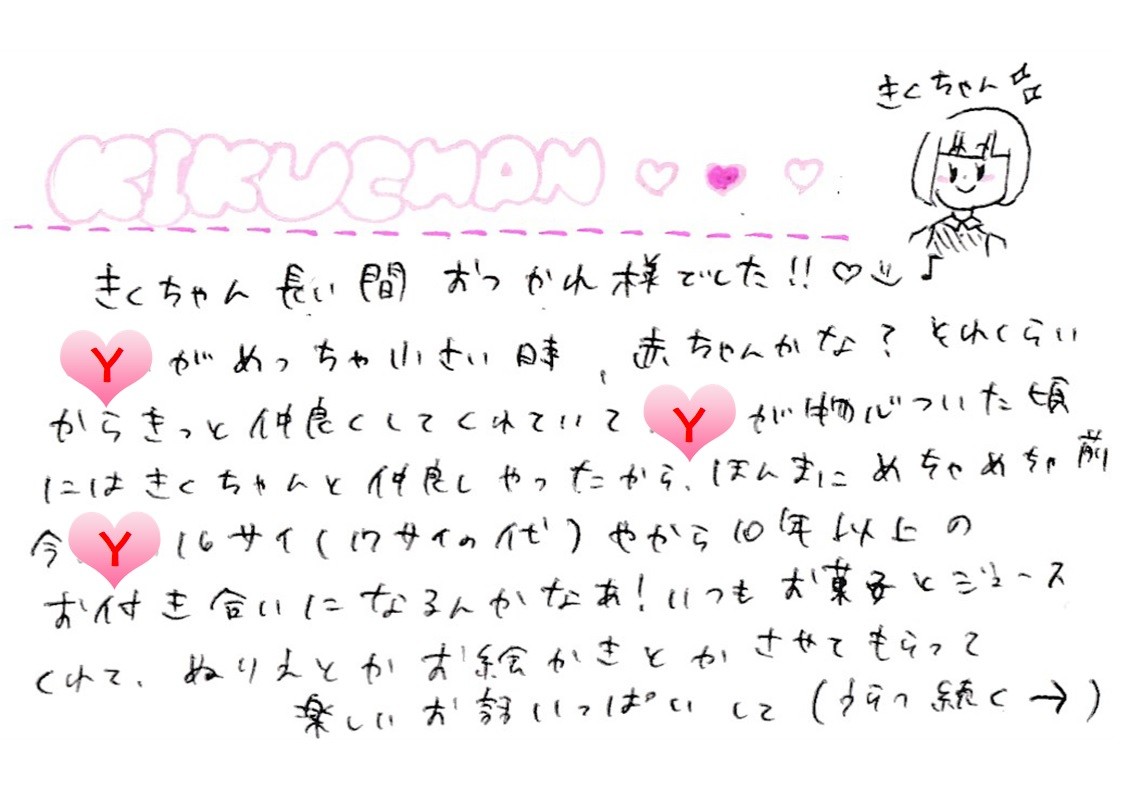 きくちゃん
KIKUCHAN
きくちゃん 長い間 おつかれ様でした!!
Y がめっちゃ小さい時、赤ちゃんかな?それくらい
からきっと仲良くしてくれていて Y が物心ついた頃
にはきくちゃんと仲良しやったから、ほんまにめちゃめちゃ前
今 Y 16サイ(17サイの代)やから10年以上の
お付き合いになるんかなあ!いつもお菓子とジュース
くれて、ぬりえとかお絵かきとかさせてもらって
楽しいお話いっぱいして(うらへ続く→)